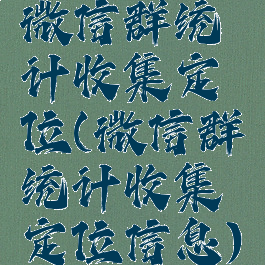 微信群统
计收集定
位(微信群
统计收集
定位信息)